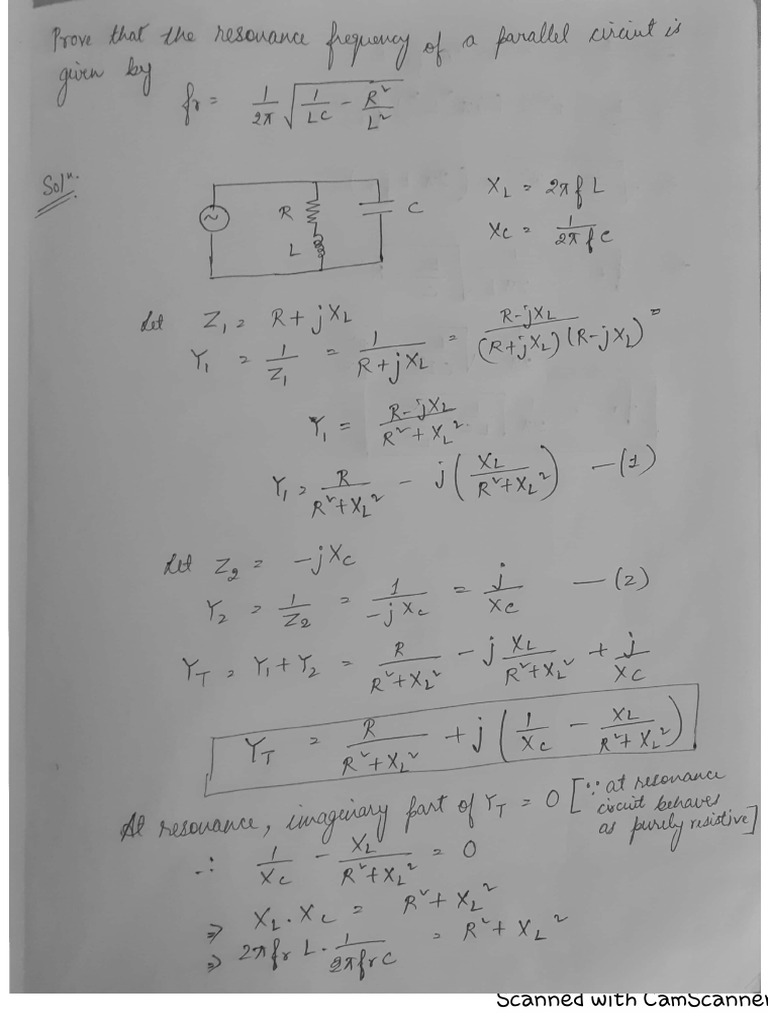 Prove that the resonance frequency of a parallel circuit is
given by
fr = 1/2π √(1/LC - R²/L²)
Solⁿ.
R
L
C
X_L = 2πfL
X_C = 1/2πfC
Let Z₁ = R + jX_L
Y₁ = 1/Z₁ = 1/(R + jX_L) = (R - jX_L)/((R + jX_L)(R - jX_L)) =
Y₁ = (R - jX_L)/(R² + X_L²)
Y₁ = R/(R² + X_L²) - j(X_L/(R² + X_L²)) — (1)
Let Z₂ = -jX_C
Y₂ = 1/Z₂ = 1/(-jX_C) = j/X_C — (2)
Y_T = Y₁ + Y₂ = R/(R² + X_L²) - j X_L/(R² + X_L²) + j/X_C
Y_T = R/(R² + X_L²) + j(1/X_C - X_L/(R² + X_L²))
At resonance, imaginary part of Y_T = 0 [∵ at resonance
circuit behaves
as purely resistive]
∴ 1/X_C - X_L/(R² + X_L²) = 0
⇒ X_L . X_C = R² + X_L²
⇒ 2πfr L . 1/2πfrC = R² + X_L²
Scanned with CamScanner